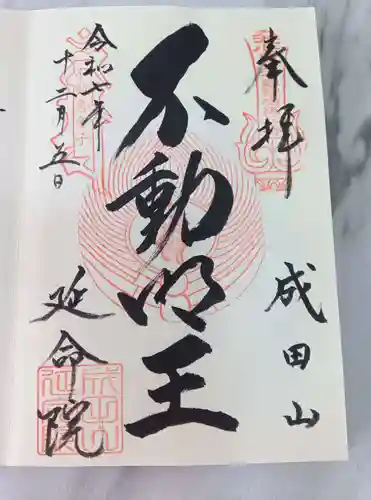 奉拝
成田山
不動明王
令和七年
十二月五日
延命院